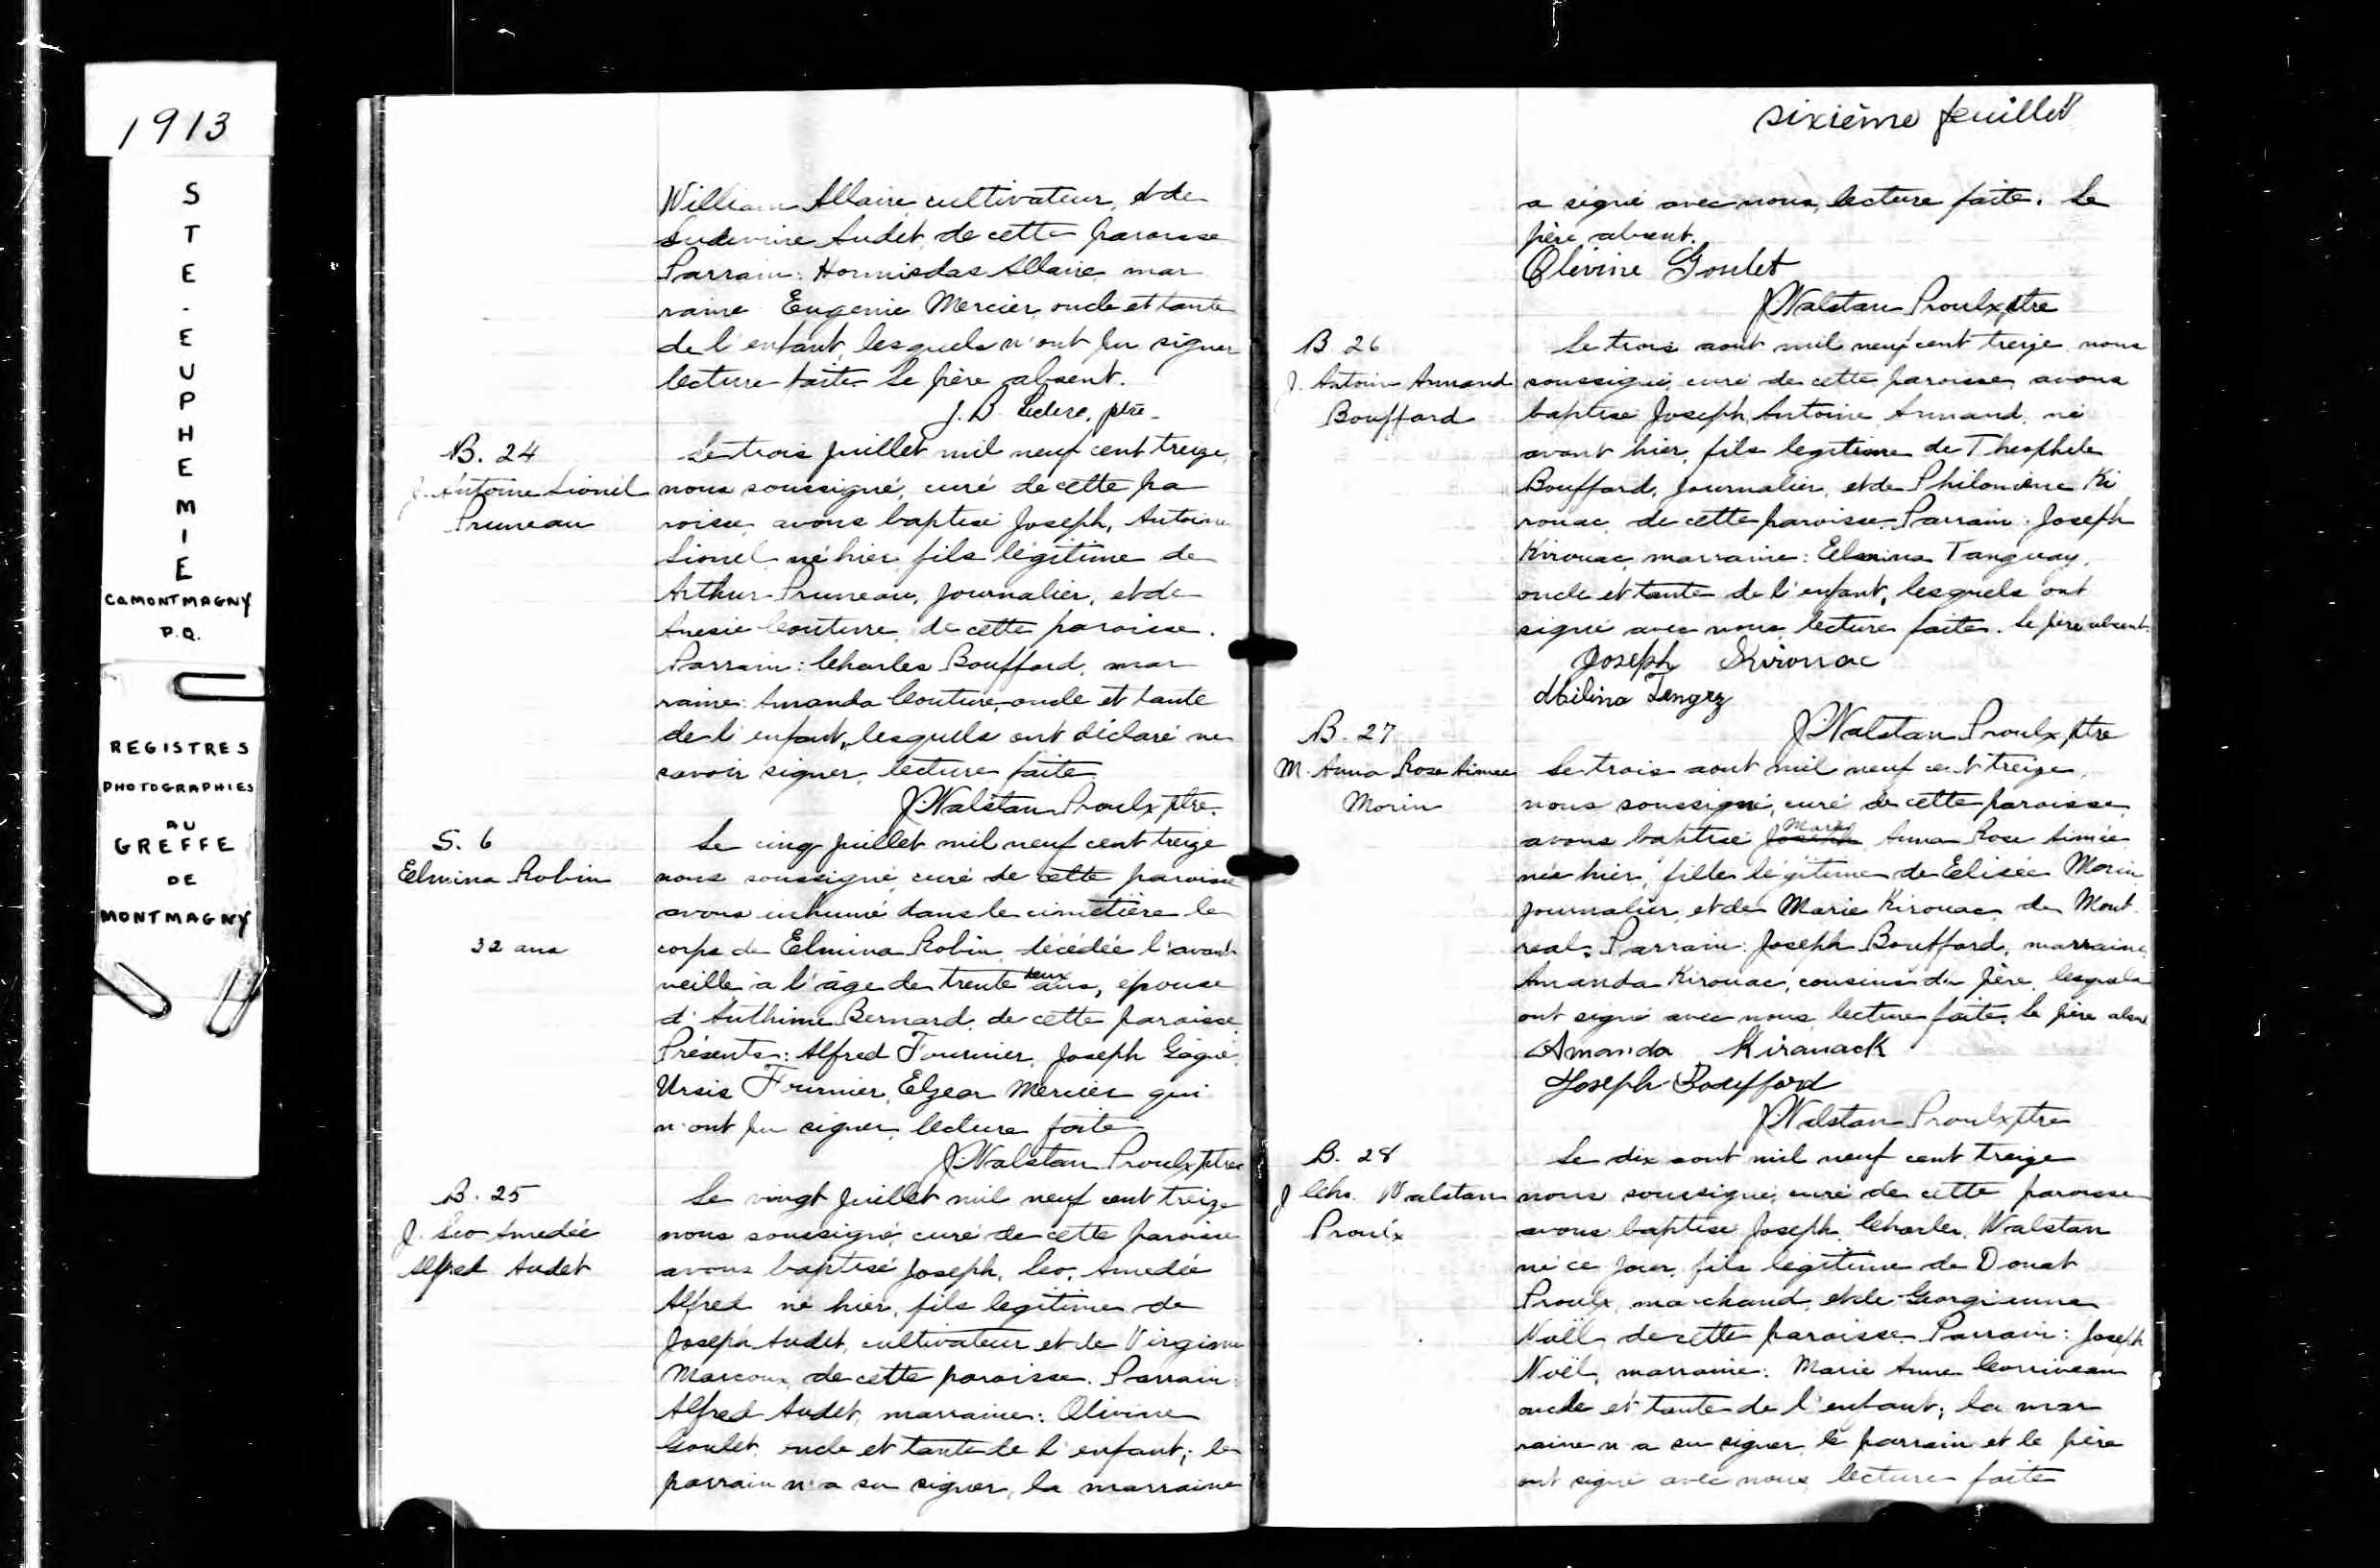 1913
S
T
E
-
E
U
P
H
E
M
I
E
Co MONTMAGNY
P.Q.
REGISTRES
PHOTOGRAPHIES
AU
GREFFE
DE
MONTMAGNY
William Allaire cultivateur, et de
Audet, de cette paroisse
Parrain: Hormisdas Allaire mar
raine Eugenie Mercier oncle et tante
de l'enfant, lesquels n'ont pu signer
lecture faite Le père absent.
J. B. Leclerc, ptre.
B. 24
J. Antoine Lionel
Pruneau
Le trois juillet mil neuf cent treize,
nous soussigné, curé de cette pa
roisse avons baptisé Joseph, Antoine
Lionel né hier fils légitime de
Arthur Pruneau, journalier, et de
Anesie Couture, de cette paroisse.
Parrain: Charles Bouffard, mar
raine: Amanda Couture, oncle et tante
de l'enfant, lesquels ont déclaré ne
savoir signer, lecture faite
J. Walstan Proulx, ptre.
S. 6
Elmina Robin
32 ans
Le cinq juillet mil neuf cent treize
nous soussigné curé de cette paroisse
avons inhumé dans le cimetière le
corps de Elmina Robin, décédée l'avant
veille à l'âge de trente deux ans, epouse
d'Anthime Bernard, de cette paroisse.
Présents: Alfred Fournier, Joseph Gagné,
Ursis Fournier, Elzear Mercier qui
n'ont pu signer, lecture faite
J. Walstan Proulx, ptre
B. 25
J. Leo Amedée
Alfred Audet
Le vingt juillet mil neuf cent treize
nous soussigné, curé de cette paroisse
avons baptisé Joseph, Leo, Amedée
Alfred né hier, fils legitime de
Joseph Audet, cultivateur et de Virginie
Marcoux, de cette paroisse. Parrain:
Alfred Audet, marraine: Olivine
Goulet, oncle et tante de l'enfant; le
parrain n'a su signer, la marraine
sixième feuillet
a signé avec nous, lecture faite. Le
père absent.
Olevine Goulet
J. Walstan Proulx, ptre
B. 26
J. Antoine Armand
Bouffard
Le trois aout mil neuf cent treize nous
soussigné, curé de cette paroisse avons
baptisé Joseph, Antoine Armand, né
avant hier, fils legitime de Theophile
Bouffard, journalier, et de Philomène Ki
rouac de cette paroisse. Parrain: Joseph
Kirouac, marraine: Elmina Tanguay,
oncle et tante de l'enfant, lesquels ont
signé avec nous, lecture faite. Le père absent.
Joseph Kirouac
J. Walstan Proulx, ptre
B. 27
M. Anna Rose Aimee
Morin
Le trois aout mil neuf cent treize,
nous soussigné, curé de cette paroisse,
avons baptisé Joseph Marie Anna Rose Aimée
née hier, fille légitime de Elisée Morin
journalier, et de Marie Kirouac de Mont
real. Parrain: Joseph Bouffard, marraine
Amanda Kirouac, cousins du père, lesquels
ont signé avec nous lecture faite. Le père absent
Amanda Kirouack
Joseph Bouffard
J. Walstan Proulx, ptre
B. 28
J Chs. Walstan
Proulx
Le dix aout mil neuf cent treize
nous soussigné, curé de cette paroisse
avons baptisé Joseph, Charles, Walstan
né ce jour, fils légitime de Donat
Proulx, marchand, et de Georgianna
Noël de cette paroisse. Parrain: Joseph
Noël, marraine: Marie Anne Corriveau
oncle et tante de l'enfant; la mar
raine n'a su signer, le parrain et le père
ont signé avec nous, lecture faite